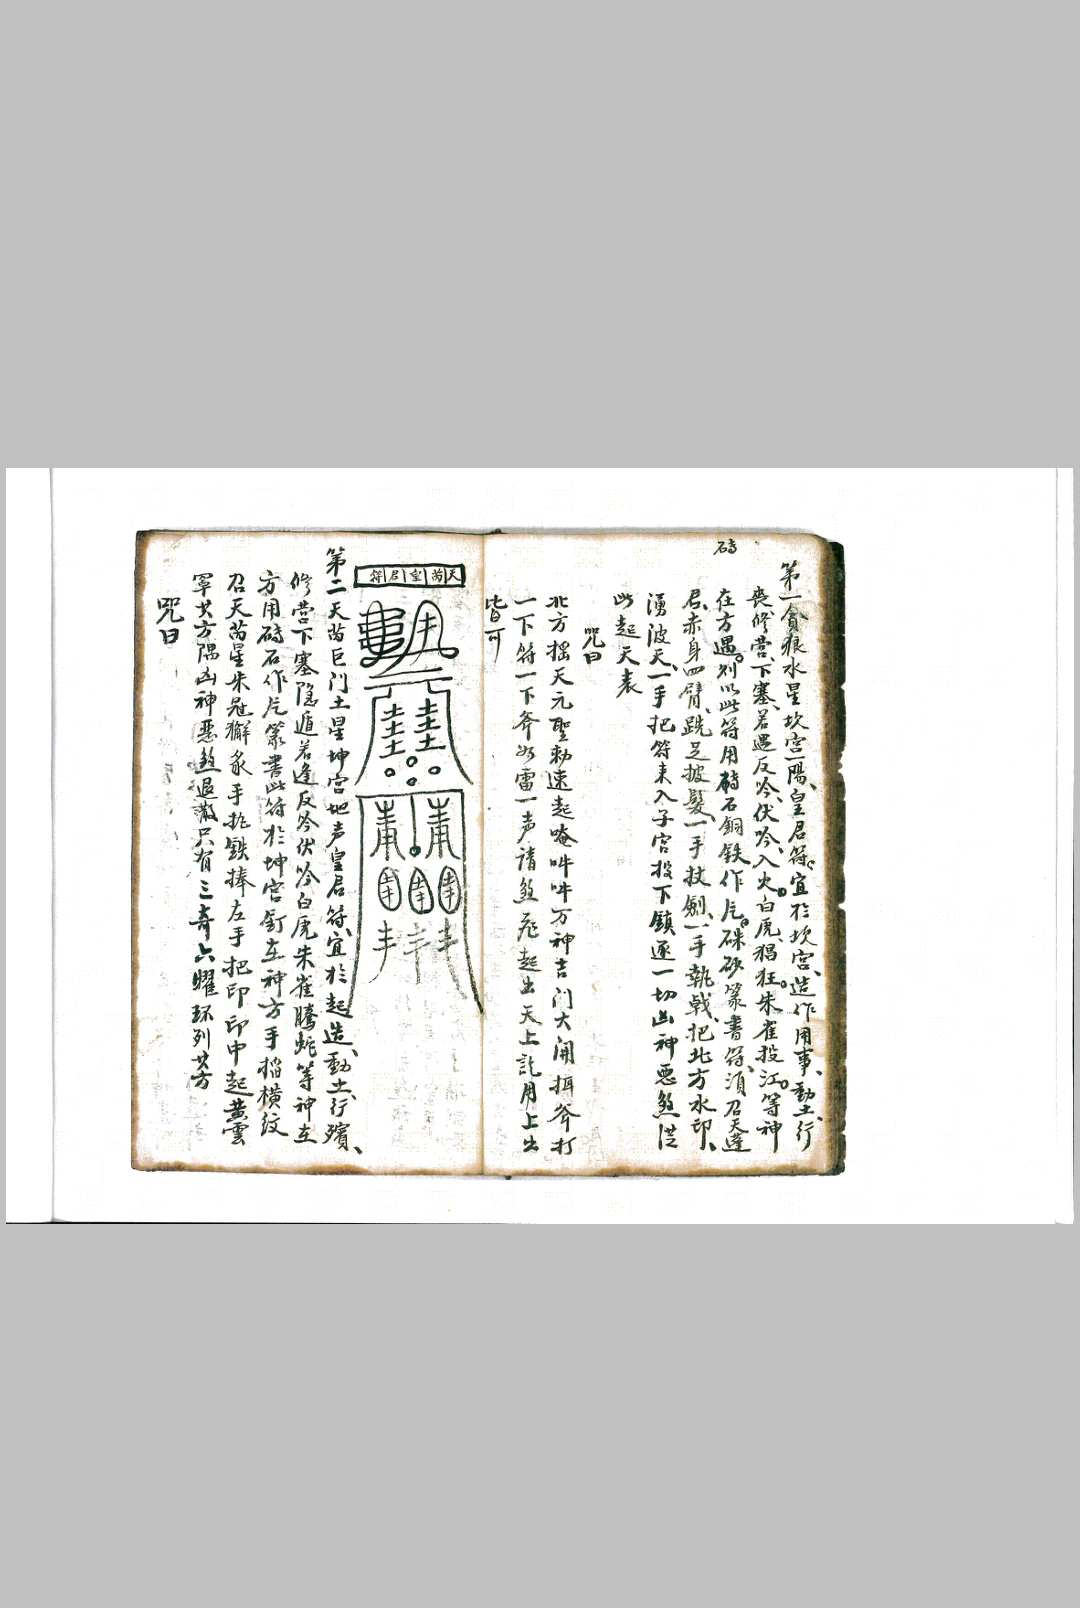 砖
第一貪狼水星坎宫一陽皇君符宜於坎宫造作用事動土行
喪修营下塞若遇反吟伏吟入火白虎猖狂朱雀投江等神
在方遇刘以此符用砖石銅铁作片硃砂篆書符須召天蓬
君赤身四臂跣足披髮一手扙劍一手執戟把北方水印
湧波天一手把符束入子宫投下鎮逐一切凶神恶煞
此起天表
咒曰
北方揺天元聖勅速起唵吽吽万神吉门大闹斧打
一下符一下斧如雷一声请煞起出天上託月上出
皆可
天芮皇君符
第二天芮巨门土星坤宫地声皇君符宜於起造動土行殯
修营下塞隐遁若逢反吟伏吟白虎朱雀騰蛇等神在
方用砖石作片篆書此符於坤宫釘在神方手搯横纹
召天芮星朱冠獬豸手把铁捧左手把印印中起黄雲
罩其方隅凶神恶煞退散只有三奇六耀环列其方
咒曰